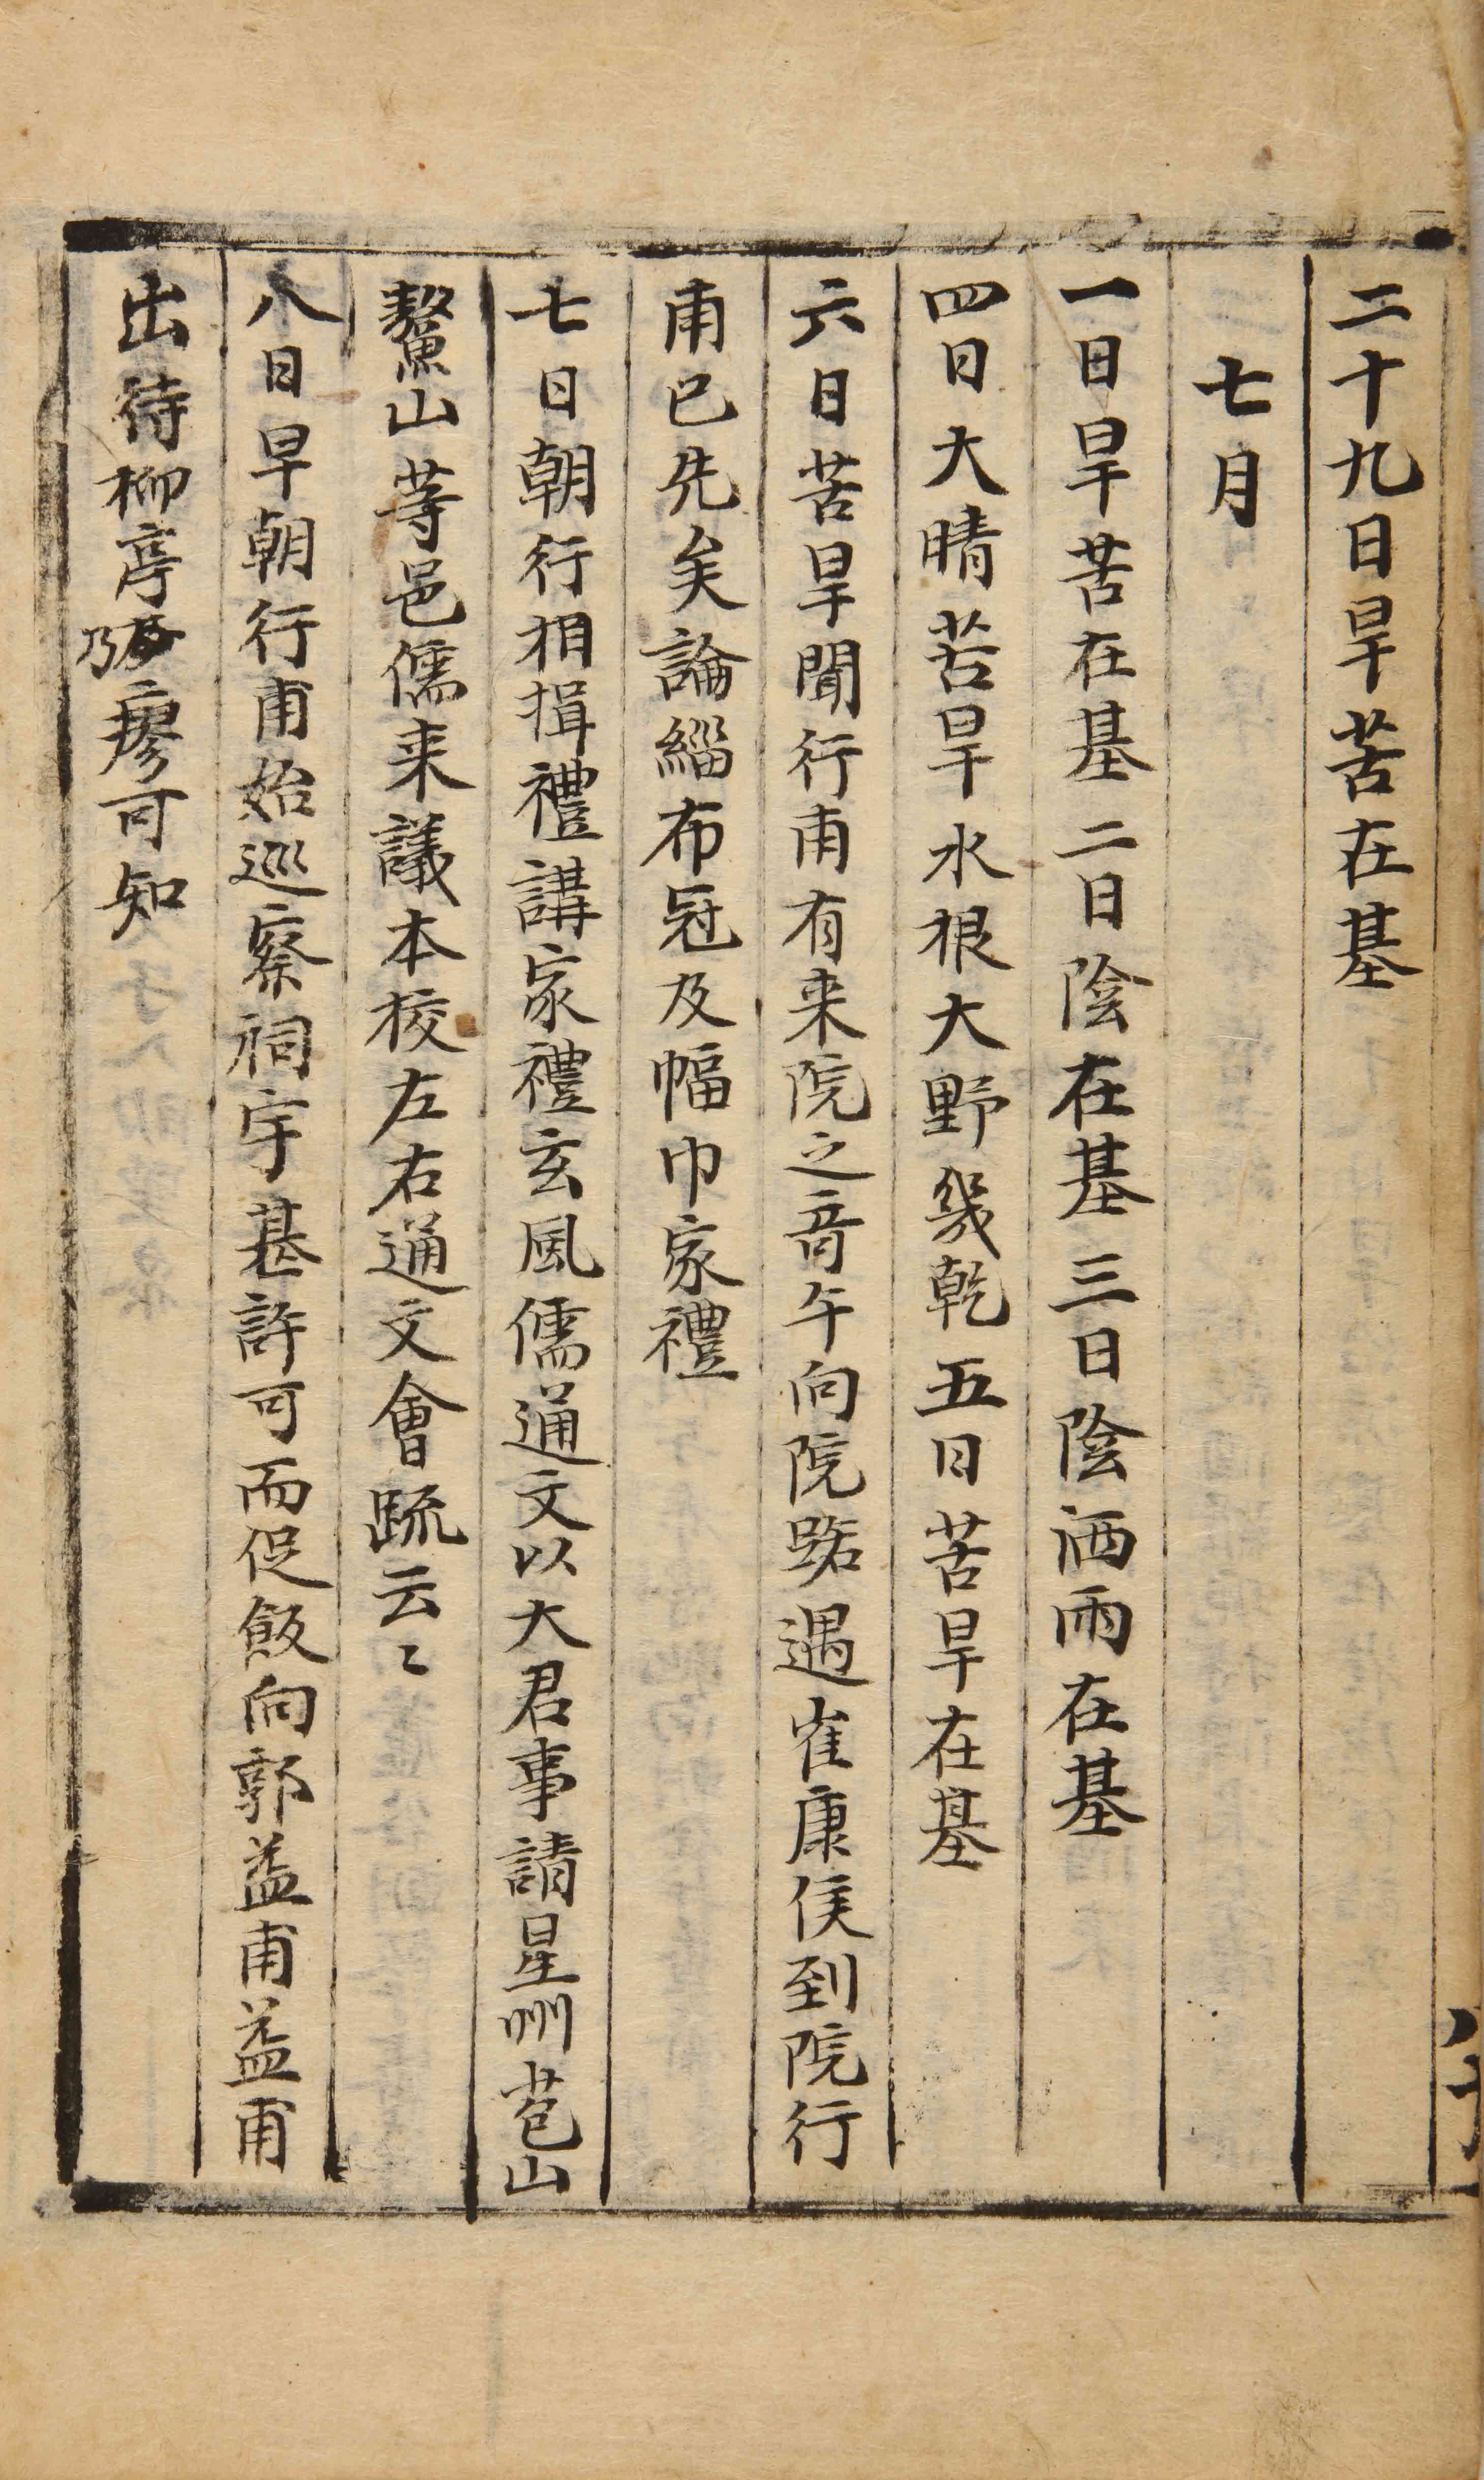 二十九日旱苦在基
七月
一日旱苦在基 二日陰在基 三日陰洒雨在基
四日大晴苦旱水根大野幾乾 五日苦旱在基
六日苦旱聞行甫有来院之音午向院路遇崔康侯到院行
甫已先矣論緇布冠及幅巾家禮
七日朝行相揖禮講家禮玄風儒通文以大君事請星州苞山
鰲山等邑儒来議本校左右通文會疏云〻
八日早朝行甫始巡察祠宇甚許可而促飯向郭益甫益甫
出待柳亭乃瘳可知